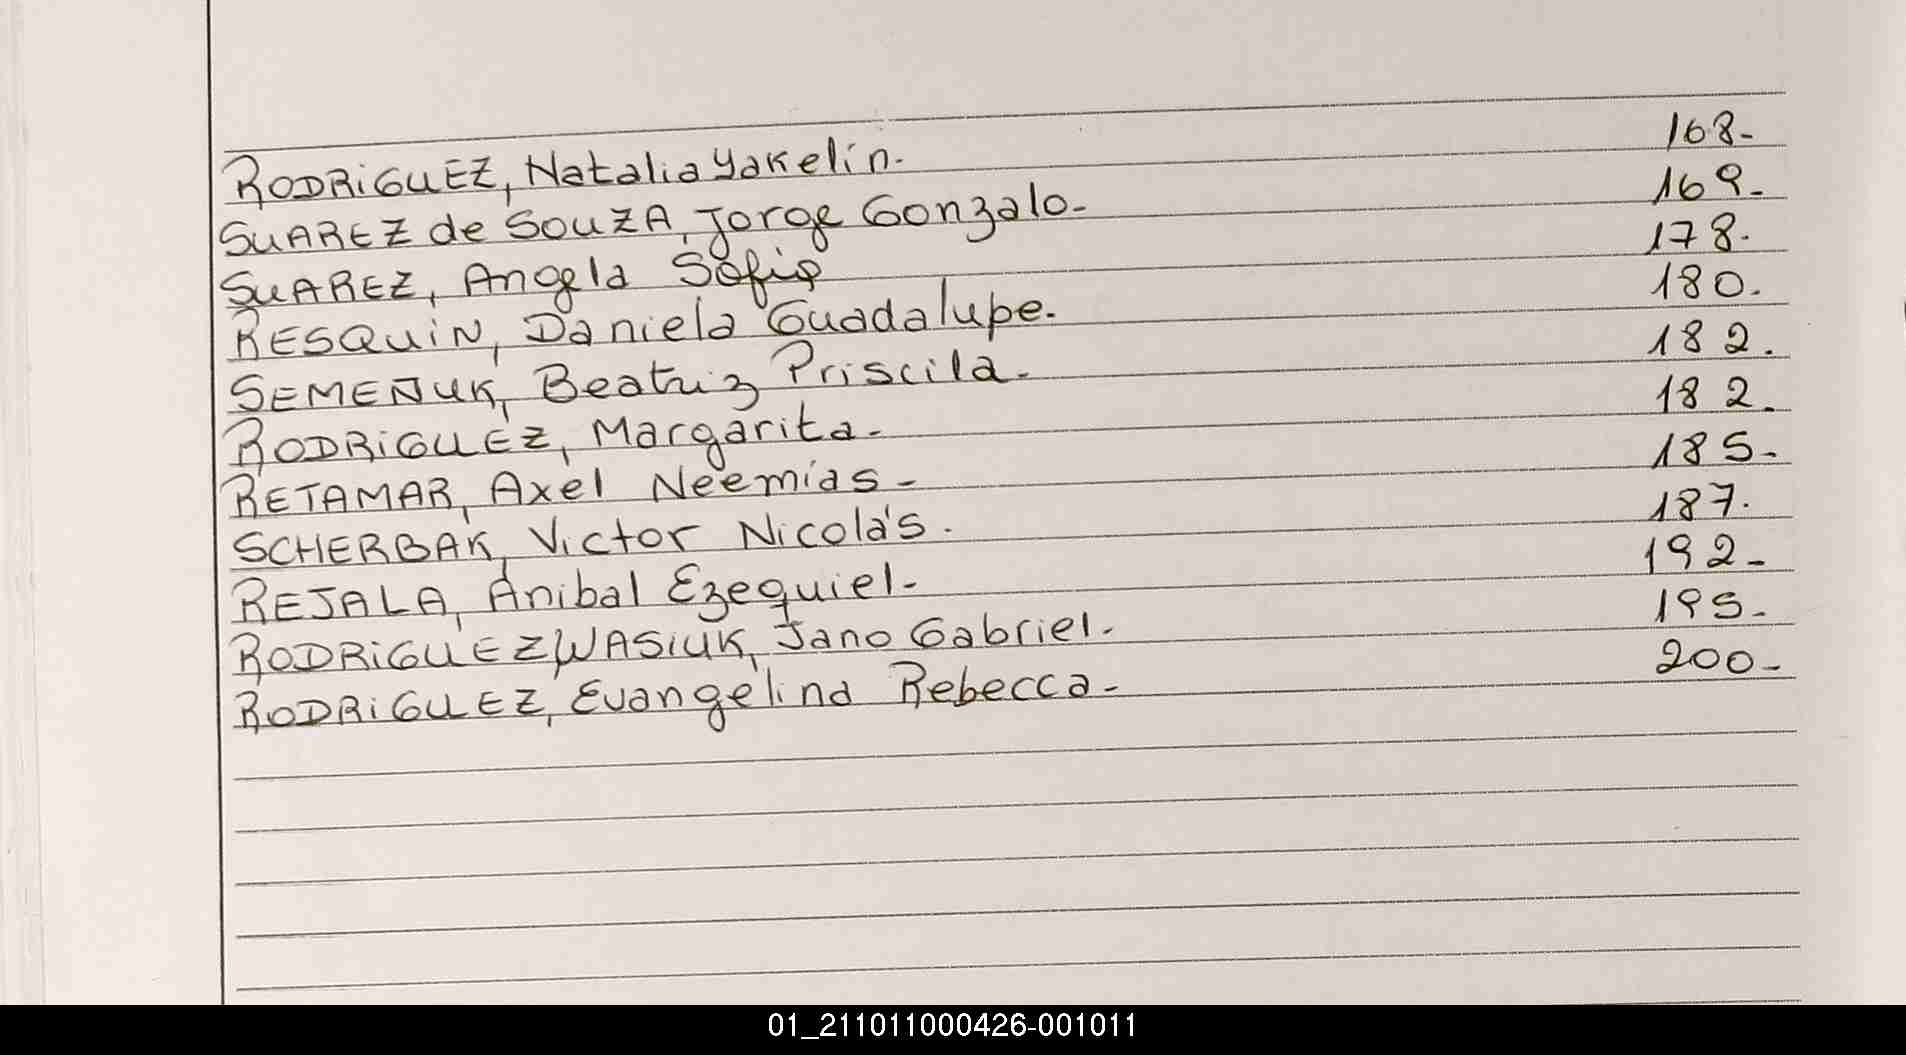 RODRiGUEZ, Natalia Yakelin. 168-
SUAREZ de SOUZA, Jorge Gonzalo. 169-
SUAREZ, Angela Sofia 178-
RESQUiN, Daniela Guadalupe. 180.
SEMENJUK, Beatriz Priscila. 182.
RODRiGUEZ, Margarita. 182.
RETAMAR, Axel Neemias - 185-
SCHERBAK, Victor Nicolás. 187.
REJALA, Anibal Ezequiel- 192-
RODRiGUEZ WASiUK, Jano Gabriel. 195-
RODRiGUEZ, Evangelina Rebecca- 200-
01_211011000426-001011